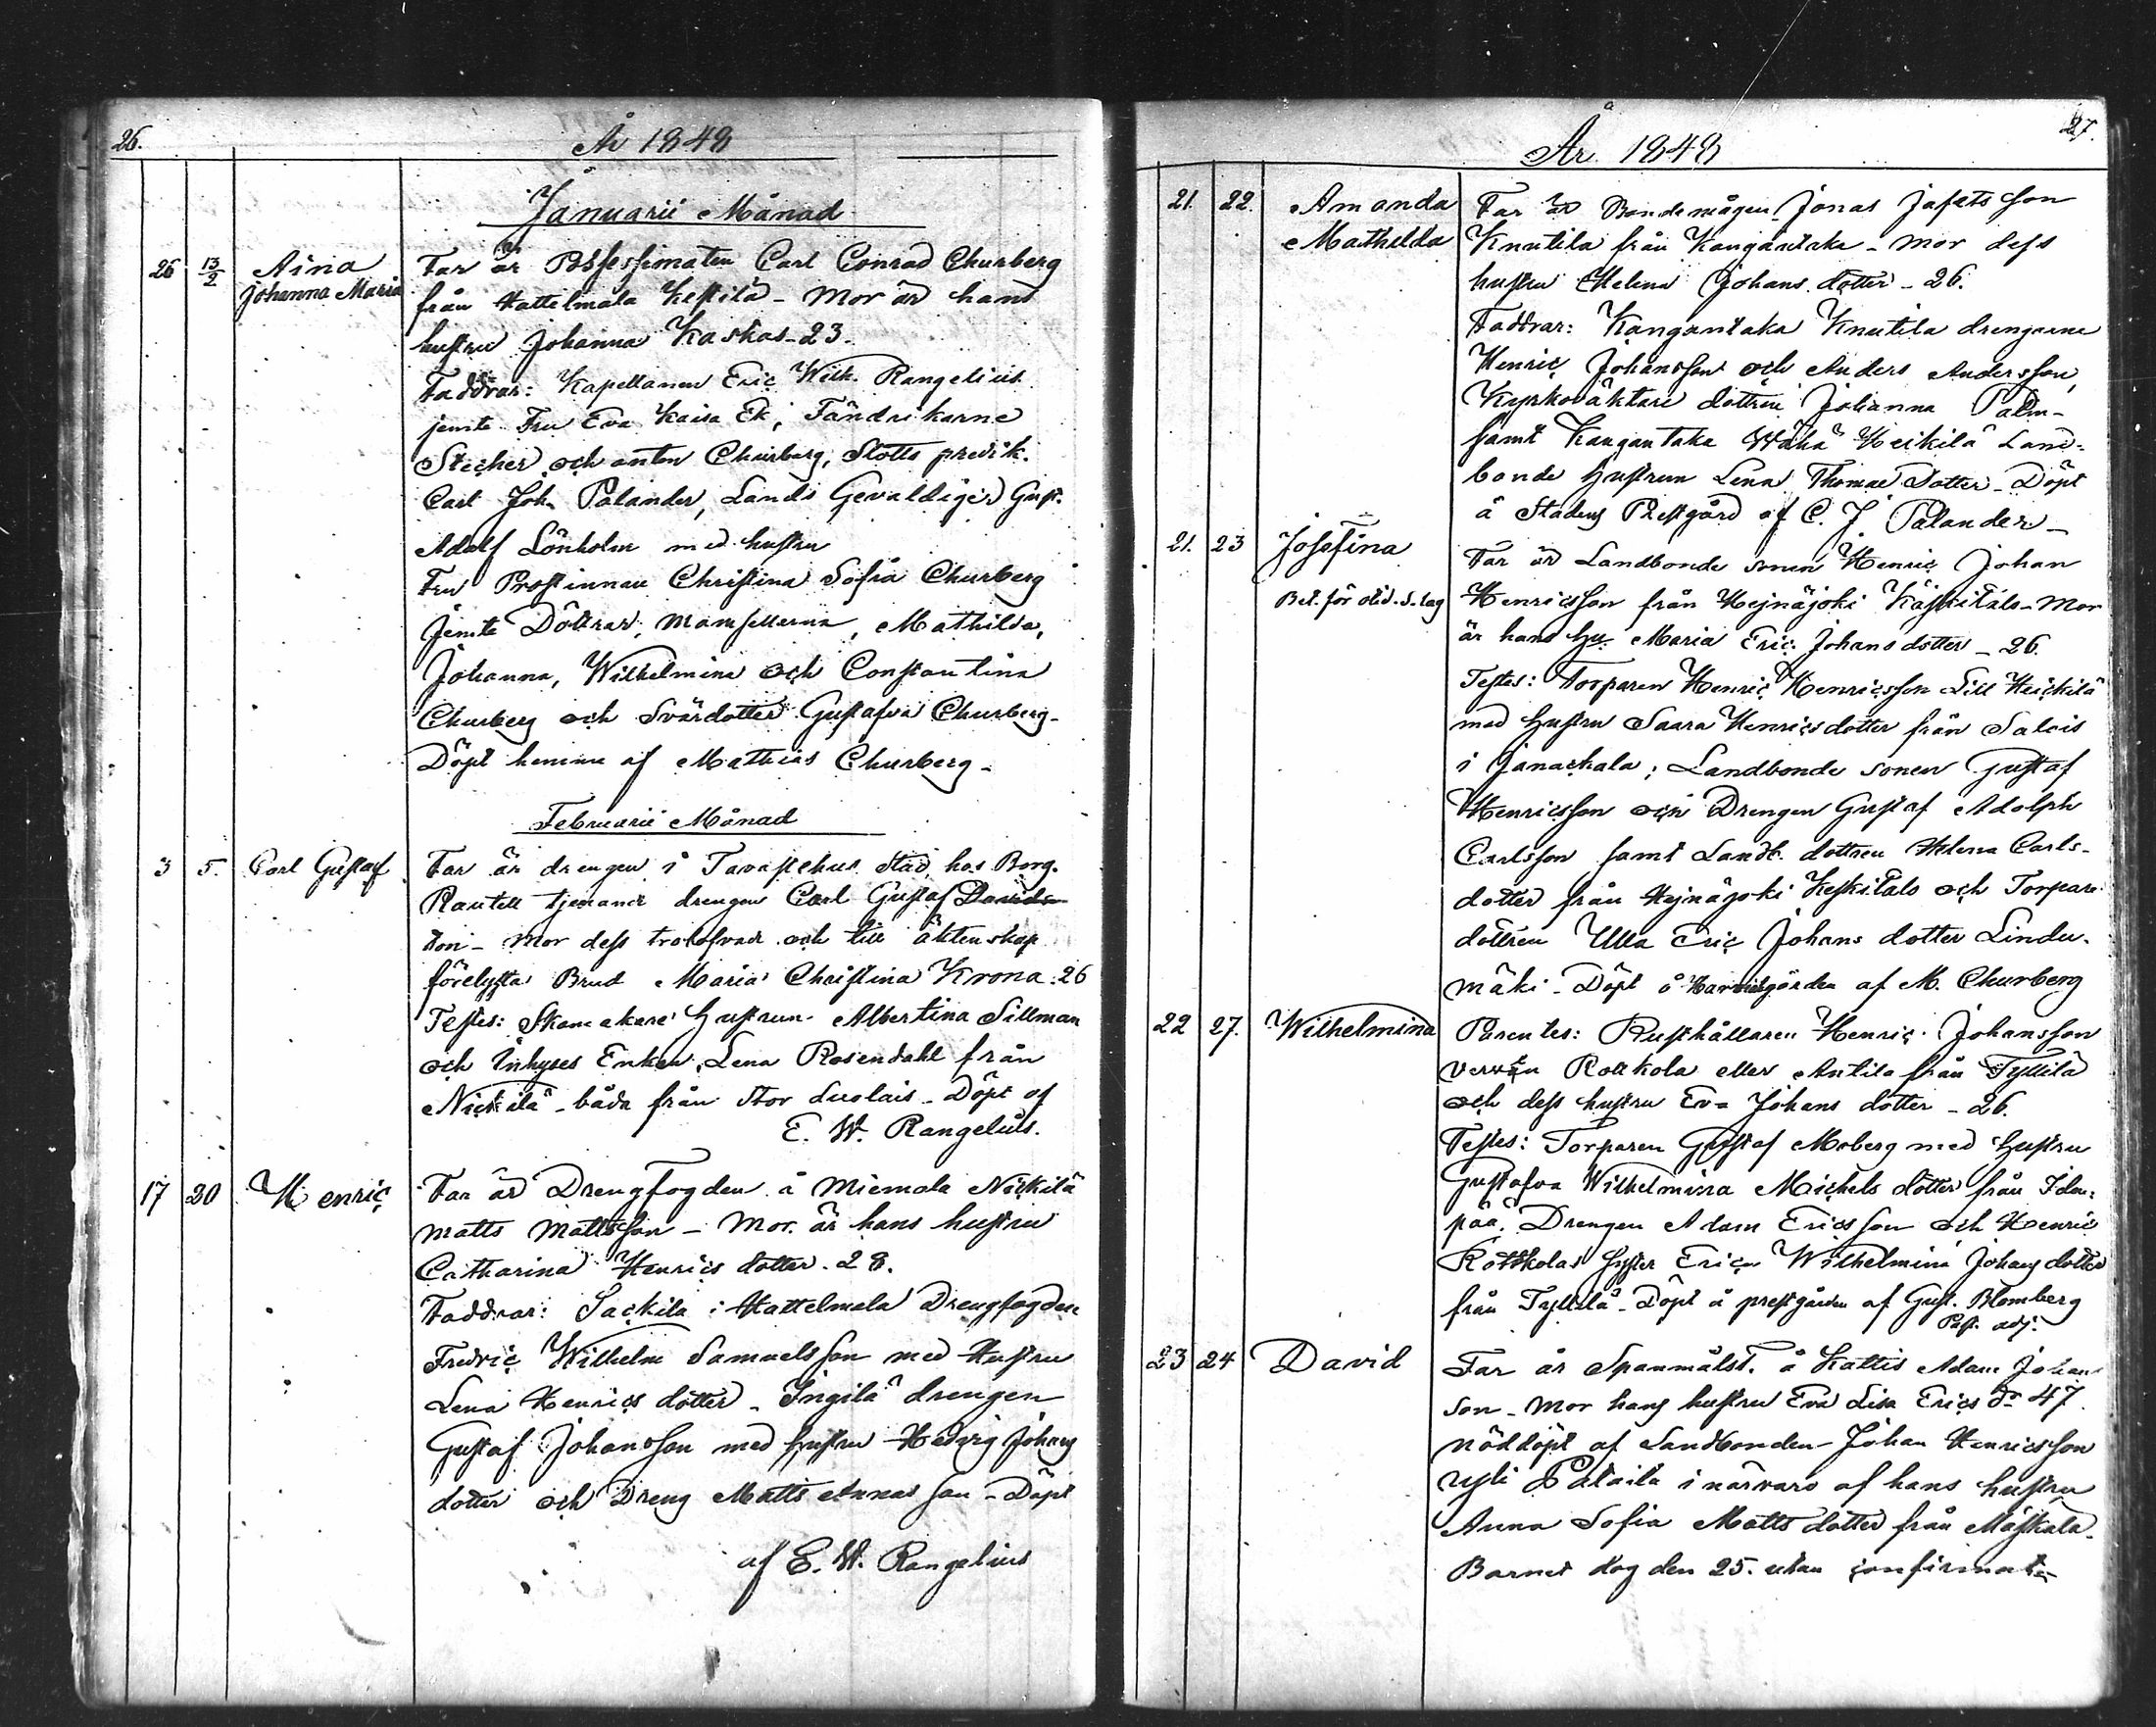 26.
År 1848
Januarii Månad
26 13/2 Aina Johanna Maria
Far är Possessionaten Carl Conrad Churberg
från Hattelmala Keskilä - Mor är hans
hustru Johanna Kaskas - 23.
Faddrar: Kapellanen Eric Wilh. Rangelius
jemte Fru Eva Kaisa Ek, Fändrikarne
Stecher och anton Churberg, Slotts predik.
Carl Joh. Palander, Lands Gevaldiger Gust.
Adolf Lönholm med hustru
Fru Prostinnan Christina Sofia Churberg
jemte Döttrar, Mamsellerna, Mathilda,
Johanna, Wilhelmina och Constantina
Churberg och Svärdotter Gustafva Churberg -
Döpt hemma af Mathias Churberg -
Februarii Månad
3 5. Carl Gustaf
Far är drengen i Tavastehus stad, hos Borg.
Rautell tjenande drengen Carl Gustaf Davids-
son - Mor dess trolofvade och till äktenskap
förelysta Brud Maria Christina Krona. 26
Testes: Skomakare hustrun Albertina Sillman
och Inhyses Enkan Lena Rosendahl från
Nickilä - båda från Stor Luolais - Döpt af
E. W. Rangelius.
17 20 Henric
Far är Drengfogden å Miemala Nickilä
Matts Mattsson - Mor är hans hustru
Catharina Henrics dotter - 28.
Faddrar: Sackila i Hattelmala Drengfogden
Fredric Wilhelm Samuelsson med Hustru
Lena Henrics dotter - Ingilä drengen
Gustaf Johansson med hustru Hedvig Johans
dotter och Dreng Matts Annas son - Döpt
af E. W. Rangelius
27.
År 1848
21. 22. Amanda Mathilda
Far är Bondemågen Jonas Jafetsson
Knutila från Kangantaka - Mor dess
hustru Helena Johans dotter - 26.
Faddrar: Kangantaka Knutila drengarne
Henric Johansson och Anders Andersson,
Kyrkoväktare dottren Johanna Palm -
samt Kangantaka Wähä Heikilä Land-
bonde hustrun Lena Thomae Dotter - Döpt
å Stadens Prestgård af C. J. Palander -
21. 23 Josefina
Bet. för otid. s. lag
Far är Landbonde sonen Henric Johan
Henricsson från Hejnäjoki Käskitalo - Mor
är hans Hu Maria Eric Johans dotter - 26.
Testes: Torparen Henric Henricsson Lill Heickilä
med hustru Saara Henricsdotter från Salois
i Janackala; Landbonde sonen Gustaf
Henricsson och Drengen Gustaf Adolph
Carlsson samt Landb. dottren Helena Carls-
dotter från Hejnäjoki Keskitalo och Torpare
dottren Ulla Eric Johans dotter Lindu-
mäki - Döpt å af M. Churberg
22 27. Wilhelmina
Parentes: Rusthållaren Henric Johansson
Rottkola eller Antila från Tyllilä
och dess hustru Eva Johans dotter - 26.
Testes: Torparen Gustaf Moberg med hustru
Gustafva Wilhelmina Michels dotter från Idän-
pää. Drengen Adam Ericsson och Henric
Rottkolas syster Erica Wilhelmina Johans dotter
från Tyllilä - Döpt å prestgården af Gust. Blomberg
Past. adj.
23 24 David
Far är Spanmålst. å Kattis Adam Johan
son - Mor hans hustru Eva Lisa Erics dr 47.
nöddöpt af Landbonden Johan Henricsson
Ysti Pätäilä i närvaro af hans hustru
Anna Sofia Matts dotter från Mäskala -
Barnet dog den 25. utan confirmation